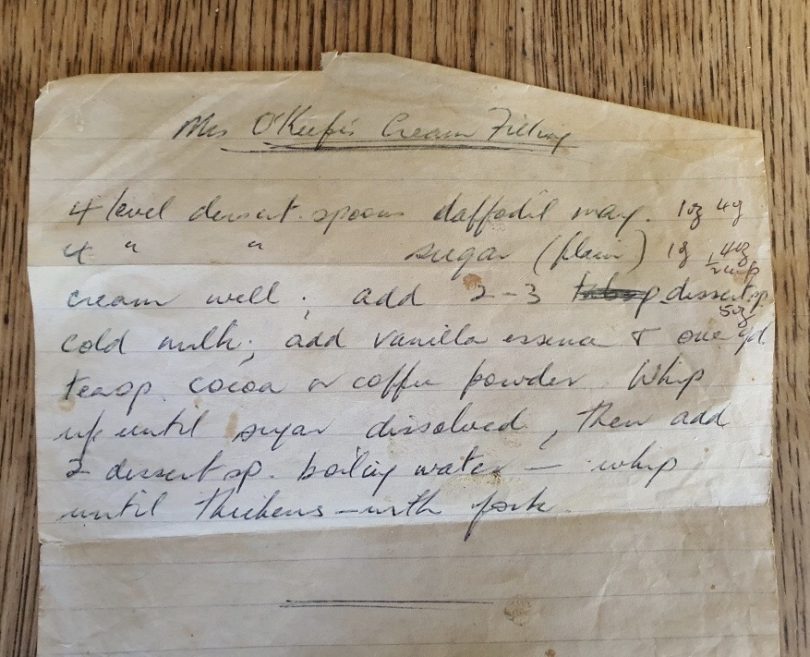 Mrs O'Keefe's Cream Filling
4 level dessert. spoons daffodil marg. 1oz 4oz
4 " " sugar (plain) 1oz 4oz
1/2 cup
cream well; add 2-3 dessertsp.
5oz
cold milk; add vanilla essence & one gd.
teasp. cocoa or coffee powder. Whip
up until sugar dissolved, then add
2 dessertsp. boiling water — whip
until thickens — with fork.